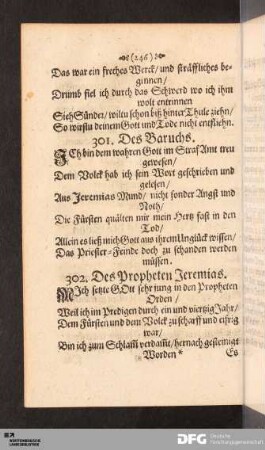 (246)
Das war ein freches Werck/ und sträffliches be-
ginnen/
Drumb fiel ich durch das Schwerd wo ich ihm
wolt entrinnen
Sieh Sünder/ wiltu schon biß hinter Thule ziehn/
So wirstu deinem Gott und Tode nicht entfliehn.
301. Des Baruchs.
ICh bin dem wahren Gott im Straf Amt treu
gewesen/
Dem Volck hab ich sein Wort geschrieben und
gelesen/
Aus Jeremias Mund/ nicht sonder Angst und
Noth/
Die Fürsten quälten mir mein Hertz fast in den
Tod/
Allein es ließ mich Gott aus ihrem Unglück wissen/
Das Priester-Feinde doch zu schanden werden
müssen.
302. Des Propheten Jeremias.
MIch setzte GOtt sehr jung in den Propheten
Orden/
Weil ich im Predigen durch ein und viertzig Jahr/
Dem Fürsten und dem Volck zu scharff und eifrig
war/
Bin ich zum Schlam̃ verdam̃t/ hernach gesteinigt
Worden *
Es
WÜRTTEMBERGISCHE
LANDESBIBLIOTHEK
DFG Deutsche
Forschungsgemeinschaft